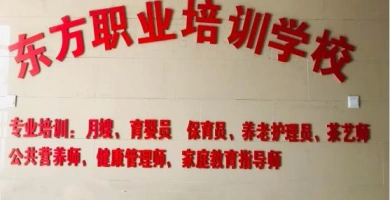 东方职业培训学校
专业培训：月嫂、育婴员 保育员、养老护理员、茶艺师
公共营养师、健康管理师、家庭教育指导师